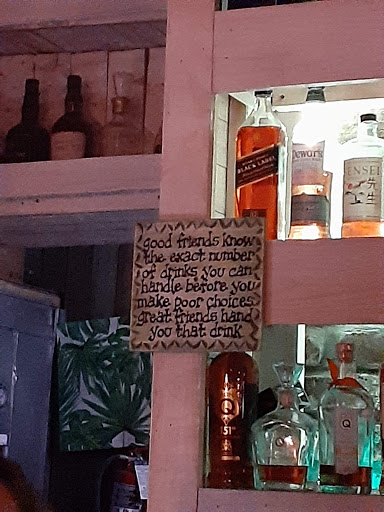 BLACK LABEL
Dewar's
SENSEI
先生
good friends know
the exact number
of drinks you can
handle before you
make poor choices
great friends hand
you that drink
Q
151
Q
Q